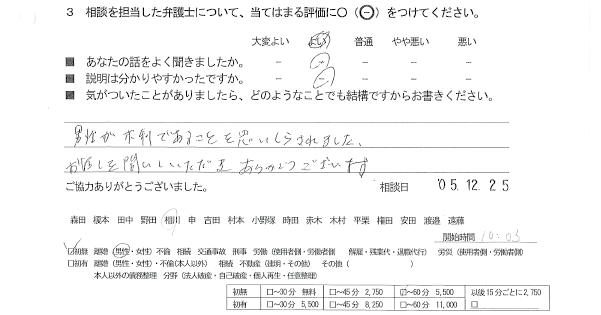 3 相談を担当した弁護士について、当てはまる評価に〇(⊖)をつけてください。
大変よい よい 普通 やや悪い 悪い
■ あなたの話をよく聞きましたか。 － － － － －
■ 説明は分かりやすかったですか。 － － － － －
■ 気がついたことがありましたら、どのようなことでも結構ですからお書きください。
男性が不利であることを思いしらされました。
お話しを聞いていただき ありがとうございます
ご協力ありがとうございました。 相談日 '05.12.25
森田 榎本 田中 野田 相川 申 吉田 村本 小野塚 時田 赤木 木村 平栗 権田 安田 渡邉 遠藤
開始時間 10:03
☑初無 離婚(男性・女性)不倫 相続 交通事故 刑事 労働(使用者側・労働者側 解雇・残業代・退職代行) 労災(使用者側・労働者側)
□初有 離婚(男性・女性)・不倫(本人以外) 相続 不動産(建明・その他) その他( )
本人以外の債務整理 分野(法人破産・自己破産・個人再生・任意整理)
初無 □～30分 無料 □～45分 2,750 ☑～60分 5,500 以後15分ごとに2,750
初有 □～30分 5,500 □～45分 8,250 □～60分 11,000 □